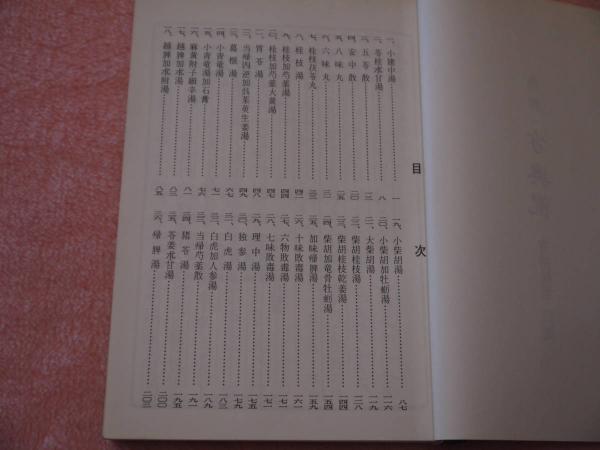 目次
一、小建中湯 一
二、苓桂朮甘湯 八
三、五苓散 一三
四、安中散 二〇
五、八味丸 二五
六、六味丸 三一
七、桂枝茯苓丸 三三
八、桂枝湯 四一
九、桂枝加芍薬湯 四四
一〇、桂枝加芍薬大黄湯 四七
一一、胃苓湯 四八
一二、当帰四逆加呉茱萸生姜湯 四九
一三、葛根湯 六七
一四、小青竜湯 七一
一五、小青竜湯加石膏 七六
一六、麻黄附子細辛湯 八一
一七、越婢加朮湯 八三
一八、越婢加朮附湯 八五
一九、小柴胡湯 八七
二〇、小柴胡加牡蛎湯 一一六
二一、大柴胡湯 一一九
二二、柴胡桂枝湯 一二八
二三、柴胡桂枝乾姜湯 一四四
二四、柴胡加竜骨牡蛎湯 一五四
二五、加味帰脾湯 一五九
二六、十味敗毒湯 一六一
二七、六物敗毒湯 一七一
二八、七味敗毒湯 一七一
二九、理中湯 一七五
三〇、独参湯 一七九
三一、白虎湯 一八三
三二、白虎加人参湯 一八九
三三、当帰芍薬散 一九一
三四、猪苓湯 一九五
三五、苓姜朮甘湯 二〇〇
三六、帰脾湯 二〇三